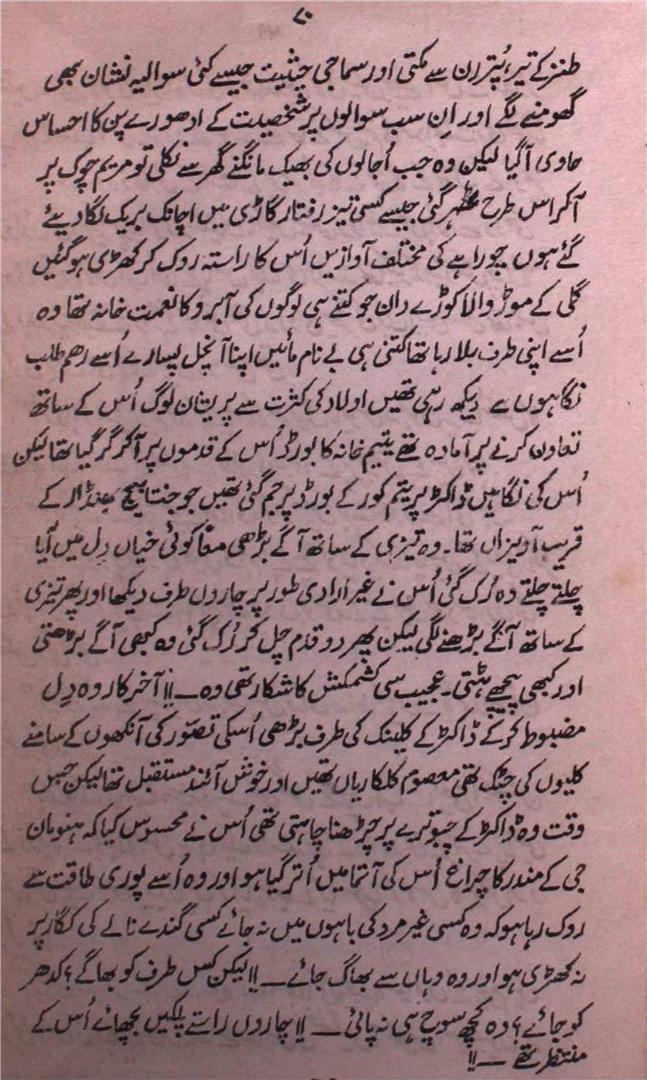 ۷۰
طنز کے تیر، پُتّر رن سے مکتی اور سماجی حیثیت جیسے کئی سوالیہ نشان بھی
گھومنے لگے اور اِن سب سوالوں پر شخصیت کے ادھورے پن کا احساس
حاوی آگیا لیکن وہ جب اُجالوں کی بھیک مانگنے گھر سے نکلی تو مریم چوک پر
آکر اس طرح ٹھہر گئی جیسے کسی تیز رفتار گاڑی میں اچانک بریک لگا دیئے
گئے ہوں چوراہے کی مختلف آوازیں اُس کا راستہ روک کر کھڑی ہوگئیں
گلی کے موڑ والا کوڑے دان جو کتنے ہی لوگوں کی آبرو کا نعمت خانہ تھا وہ
اُسے اپنی طرف بلا رہا تھا کتنی ہی بے نام مائیں اپنا آنچل پسارے اُسے رحم طلب
نگاہوں سے دیکھ رہی تھیں اولاد کی کثرت سے پریشان لوگ اُس کے ساتھ
تعاون کرنے پر آمادہ تھے یتیم خانہ کا بورڈ اُس کے قدموں پر آکر گر گیا تھا لیکن
اُس کی نگاہیں ڈاکٹر پریتم کور کے بورڈ پر جم گئی تھیں جو جنتا پیچ بھنڈار کے
قریب آویزاں تھا۔ وہ تیزی کے ساتھ آگے بڑھی معاً کوئی خیال دِل میں آیا
چلتے چلتے وہ رُک گئی اُس نے غیر ارادی طور پر چاروں طرف دیکھا اور پھر تیزی
کے ساتھ آگے بڑھنے لگی لیکن پھر دو قدم چل کر رُک گئی وہ کبھی آگے بڑھتی
اور کبھی پیچھے ہٹتی۔ عجیب سی کشمکش کا شکار تھی وہ ــ !! آخرکار وہ دِل
مضبوط کرکے ڈاکٹر کے کلینک کی طرف بڑھی اُسکی تصوّر کی آنکھوں کے سامنے
کلیوں کی چٹک تھی معصوم کلکاریاں تھیں اور خوش آئند مستقبل تھا لیکن جس
وقت وہ ڈاکٹر کے چبوترے پر چڑھنا چاہتی تھی اُس نے محسوس کیا کہ ہنومان
جی کے مندر کا چراغ اُس کی آتما میں اُتر گیا ہو اور وہ اُسے پوری طاقت سے
روک رہا ہو کہ وہ کسی غیر مرد کی باہوں میں نہ جائے کسی گندے نالے کی کگار پر
نہ کھڑی ہو اور وہ وہاں سے بھاگ جائے ــ !! لیکن کس طرف کو بھاگے ؟ کدھر
کو جائے ؟ وہ کچھ سوچ ہی نہ پائی ــ !! چاروں راستے پلکیں بچھائے اُس کے
منتظر تھے ــ !!